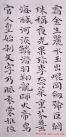 霜金生麗水玉出崑岡劍號巨闕
珠稱夜光果珍李柰菜重芥薑
海鹹河淡鱗潛羽翔龍師火帝鳥
官人皇始制文字乃服衣裳